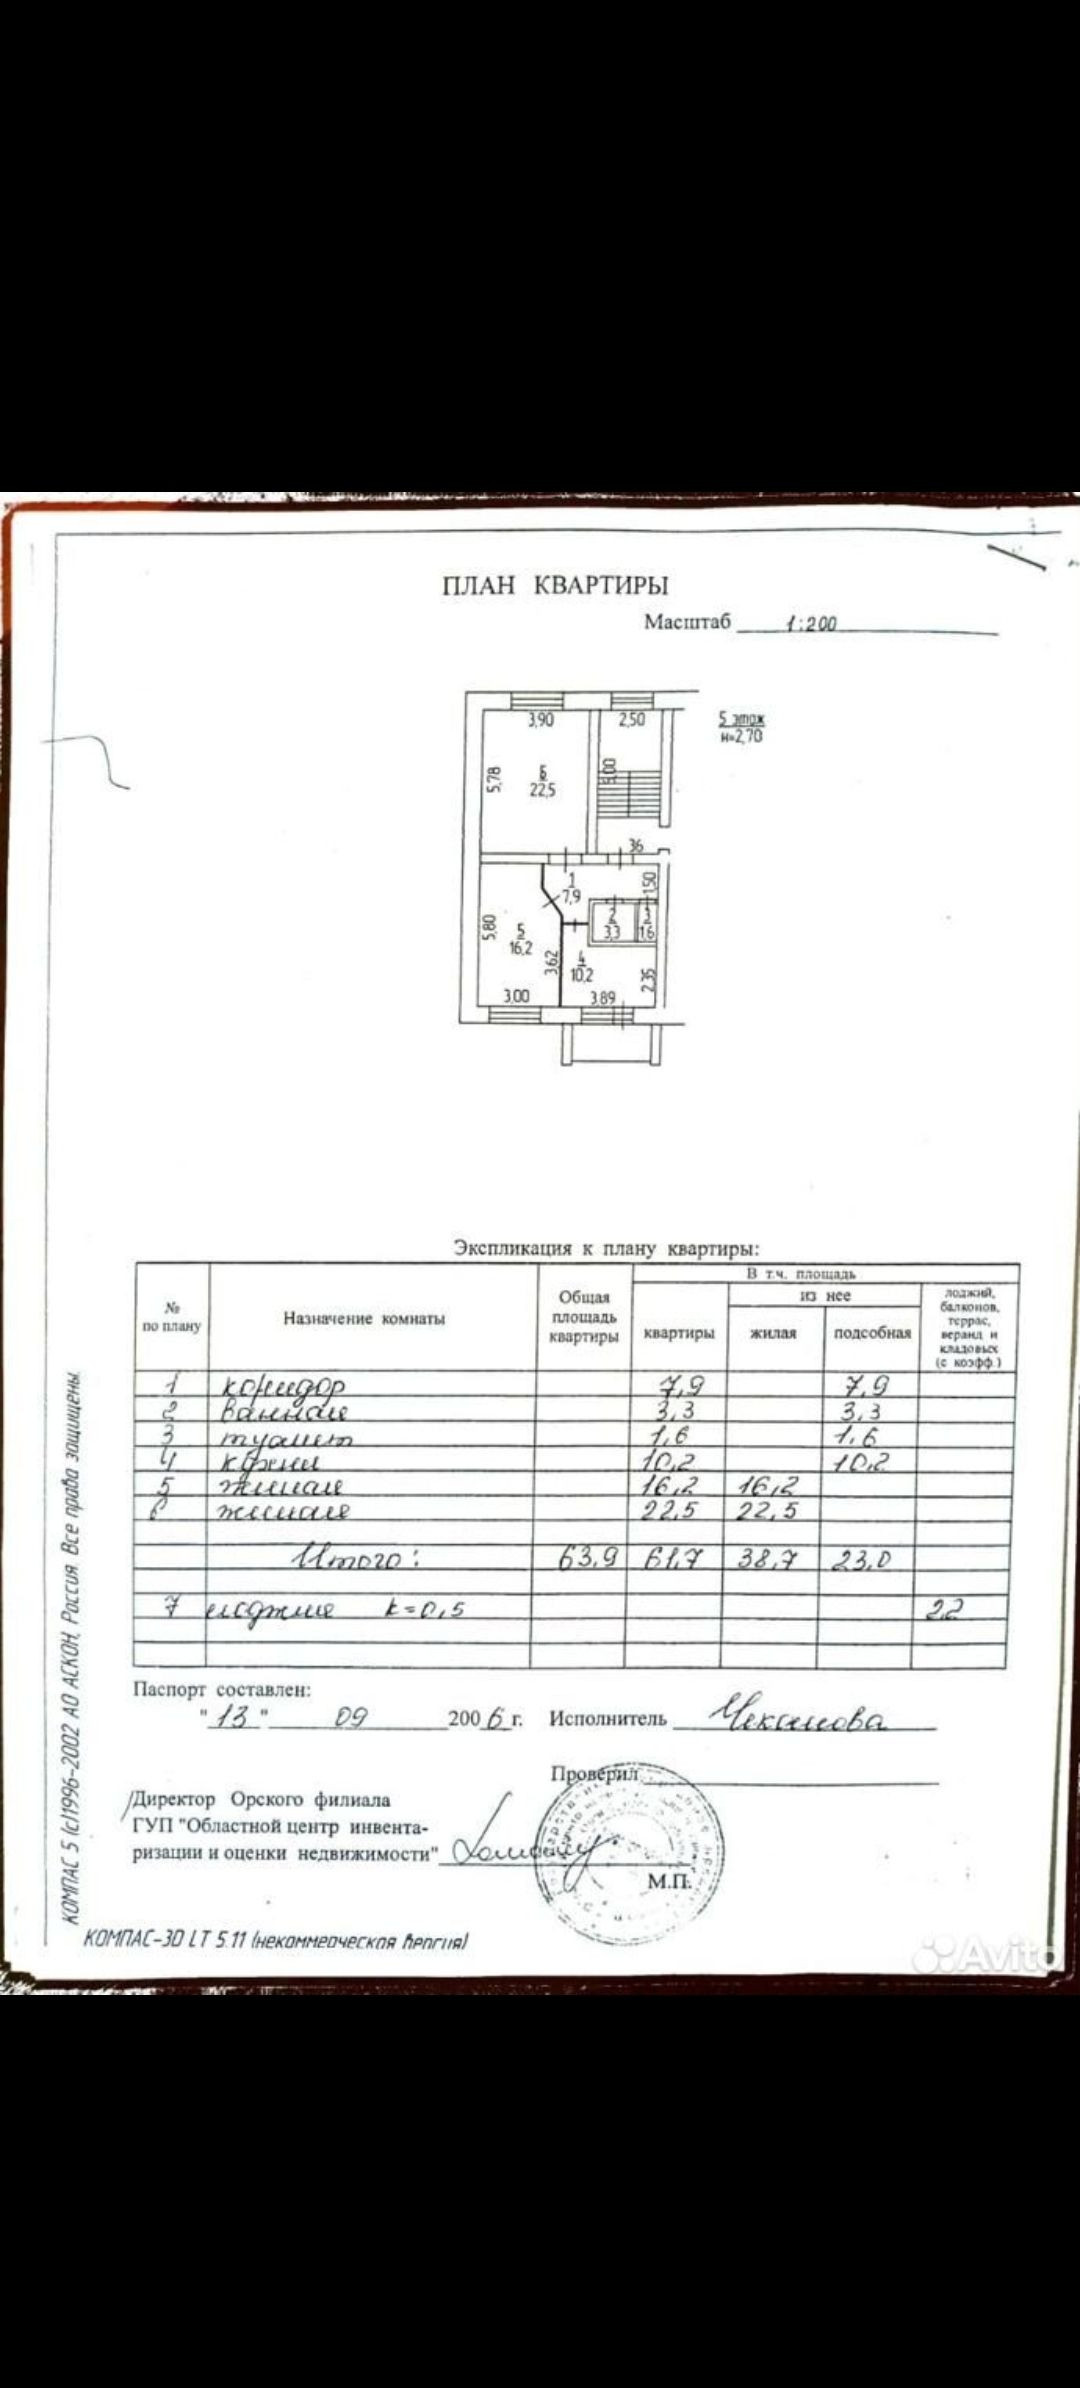 ПЛАН КВАРТИРЫ
Масштаб 1:200
3,90
2,50
5 этаж
н=2,70
5,78
6
22,5
5,00
36
1
7,9
1,50
5,80
5
16,2
2
3,3
3
1,6
3,62
4
10,2
2,35
3,00
3,89
Экспликация к плану квартиры:
№ по плану
Назначение комнаты
Общая площадь квартиры
В т.ч. площадь
из нее
квартиры
жилая
подсобная
лоджий, балконов, террас, веранд и кладовых (с коэфф.)
1 коридор 7,9 7,9
2 ванная 3,3 3,3
3 туалет 1,6 1,6
4 кухня 10,2 10,2
5 жилая 16,2 16,2
6 жилая 22,5 22,5
Итого: 63,9 61,7 38,7 23,0
7 лоджия k=0,5 2,2
Паспорт составлен:
"13" 09 2006 г. Исполнитель Чеканова
Проверил
Директор Орского филиала
ГУП "Областной центр инвента-
ризации и оценки недвижимости"
М.П.
КОМПАС 5 (c)1996-2002 АО АСКОН, Россия. Все права защищены.
КОМПАС-3D LT 5.11 (некоммерческая версия)
Avito